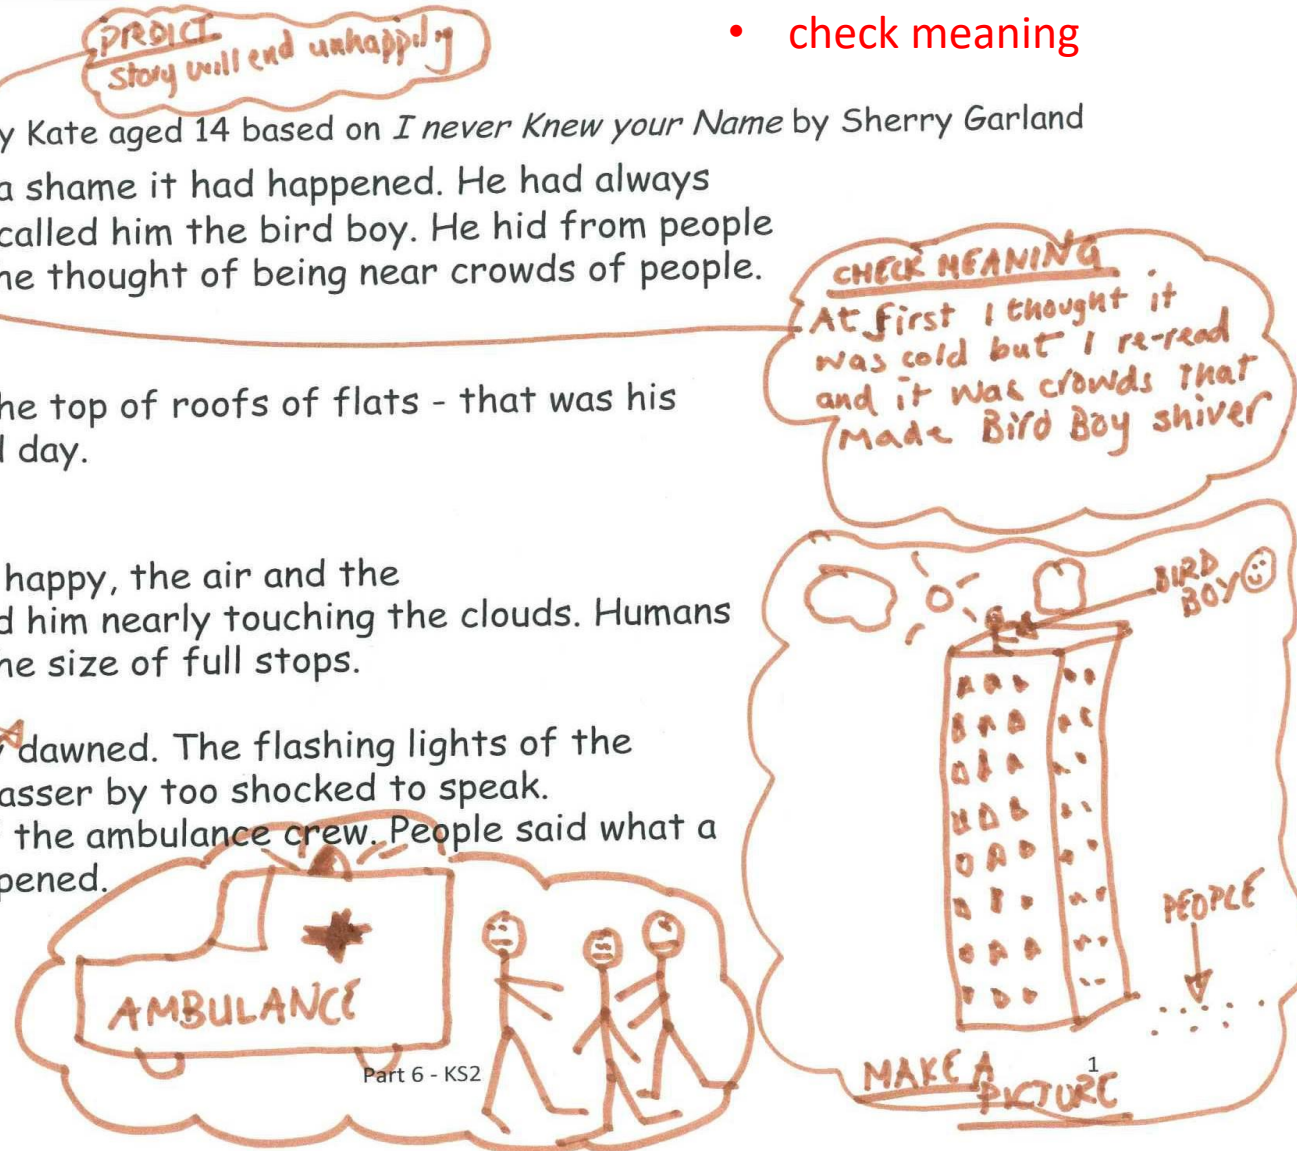 • check meaning
PREDICT
story will end unhappily
y Kate aged 14 based on I never Knew your Name by Sherry Garland
a shame it had happened. He had always
called him the bird boy. He hid from people
he thought of being near crowds of people.
CHECK MEANING
At first I thought it
was cold but I re-read
and it was crowds that
made Bird Boy shiver
he top of roofs of flats - that was his
l day.
happy, the air and the
d him nearly touching the clouds. Humans
he size of full stops.
BIRD
BOY
y dawned. The flashing lights of the
asser by too shocked to speak.
the ambulance crew. People said what a
pened.
PEOPLE
AMBULANCE
MAKE A
PICTURE
Part 6 - KS2
1